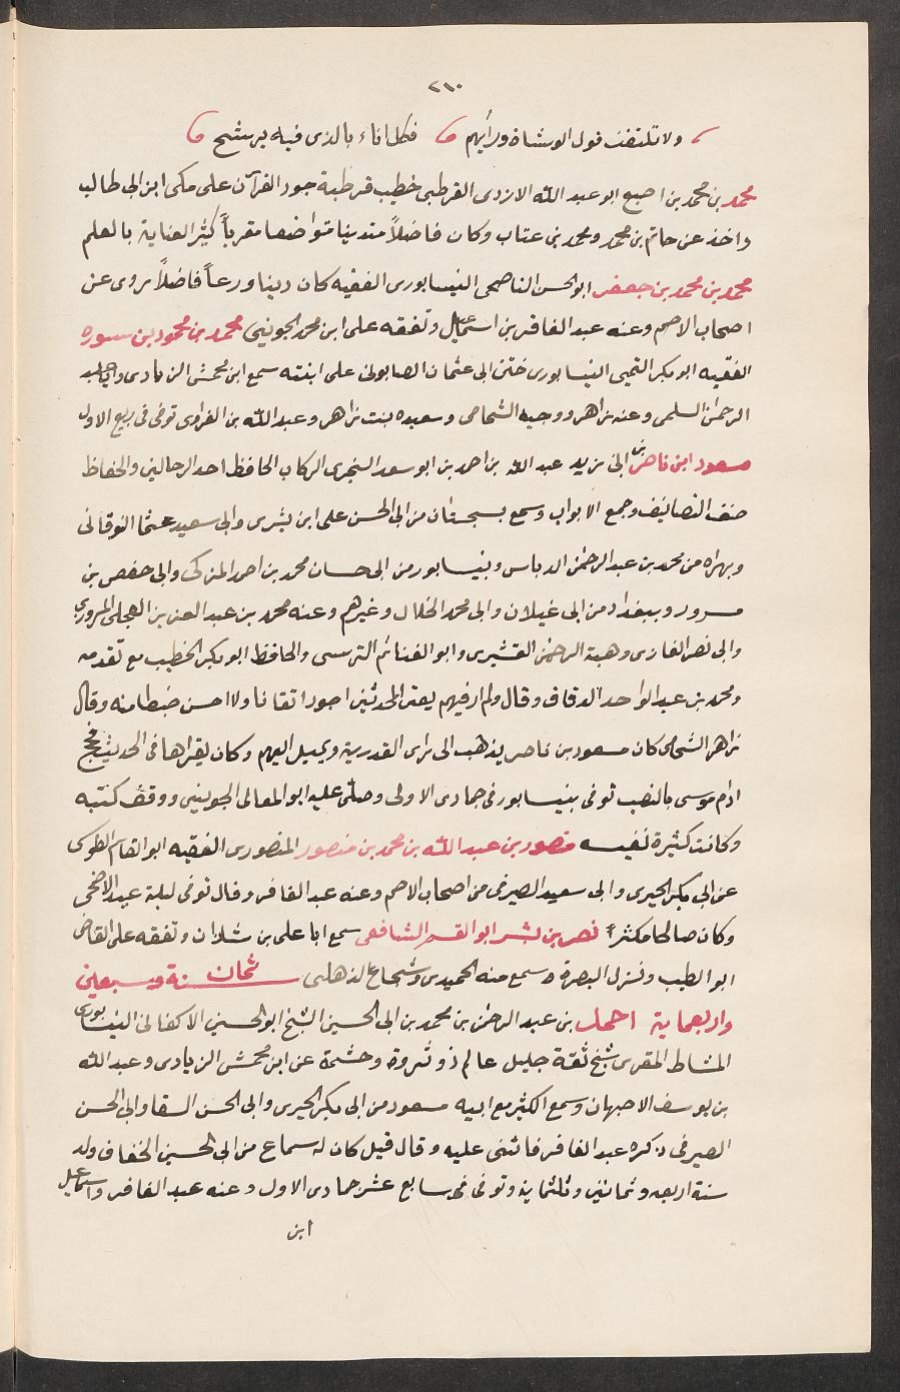 ٢١٠
ولا تلتفت قول الوشاة ورأيهم فكل اناء بالذى فيه يرشح
محمد بن محمد بن اصبع ابو عبد الله الازدى القرطبى خطيب قرطبة جود القرآن على مكى ابن ابى طالب
واخذ عن حاتم بن محمد ومحمد بن عتاب وكان فاضلاً متدينا متواضعا مقرياً كثير العناية بالعلم
محمد بن محمد بن جعفر ابو الحسن الناصحى النيسابورى الفقيه كان دينا ورعاً فاضلاً روى عن
اصحاب الاصم وعنه عبد الغافر بن اسماعيل وتفقه على ابن محمد الجوينى محمد بن محمود بن سوره
الفقيه ابو بكر التميمى النيسابورى ختن ابى عثمان الصابونى على ابنته سمع ابن محمش الزيادى وابا عبد
الرحمن السلمى وعنه زاهر ووجيه الشحامى وسعيده بنت زاهر وعبد الله بن الفراوى توفى فى ربيع الاول
مسعود ابن ناصر بن ابى زيد عبد الله بن احمد بن ابو سعد السنجرى الركاب الحافظ احد الرحالين والحفاظ
صنف التصانيف وجمع الابواب وسمع بسجستان من ابى الحسن على ابن بشرى وابى سعيد عثما النوقانى
وبهراه من محمد بن عبد الرحمن الدباس وبنيسابور من ابى حسان محمد بن احمد المزكى وابى حفص بن
مسرور وببغداد من ابى غيلان وابى محمد الخلال وغيرهم وعنه محمد بن عبد العزيز العجلى المروزي
وابى نصر الغازى وهبة الرحمن القشيرى وابو الغنائم النرسى والحافظ ابو بكر الخطيب مع تقدمه
ومحمد بن عبد الواحد الدقاق وقال ولم ار فيهم يعنى المحدثين اجود اتقانا ولا احسن ضبطا منه وقال
زاهر الشحامى كان مسعود بن ناصر يذهب الى راى القدرية ويميل اليهم وكان يقراها فى الحديث فحج
ادام موسى بالنصب توفى بنيسابور فى جمادى الاولى وصلى عليه ابو المعالى الجوينى ووقف كتبه
وكانت كثيرة نفيسه منصور بن عبد الله بن محمد بن منصور المنصورى الفقيه ابو القاسم الطوسى
عن ابى بكر الحيرى وابى سعيد الصيرفى من اصحاب الاصم وعنه عبد الغافر وقال توفى ليلة عيد الاضحى
وكان صالحا مكثراً نصر بن بشر ابو القسم الشافعى سمع ابا على بن شاذان وتفقه على القاضى
ابو الطيب ونزل البصرة وسمع منه الحميدى وشجاع الذهلى سنة ثمان وسبعين
واربعماية احمد بن عبد الرحمن بن محمد بن ابى الحسين الشيخ ابو الحسين الاكفانى النيسابورى
المشاط المقرى شيخ ثقة جليل عالم ذو ثروة وحشمة عن ابن محمش الزيادى وعبد الله
بن يوسف الاصبهان وسمع الكثير مع ابيه مسعود من ابى بكر الحيرى وابى الحسن السقا وابى الحسن
الصيرفى ذكره عبد الغافر فاثنى عليه وقال قيل كان له سماع من ابى الحسين الخفاف ولد
سنة اربعه وثمانين وثلثماية وتوفى فى سابع عشر جمادى الاول وعنه عبد الغافر واسماعيل
ابن